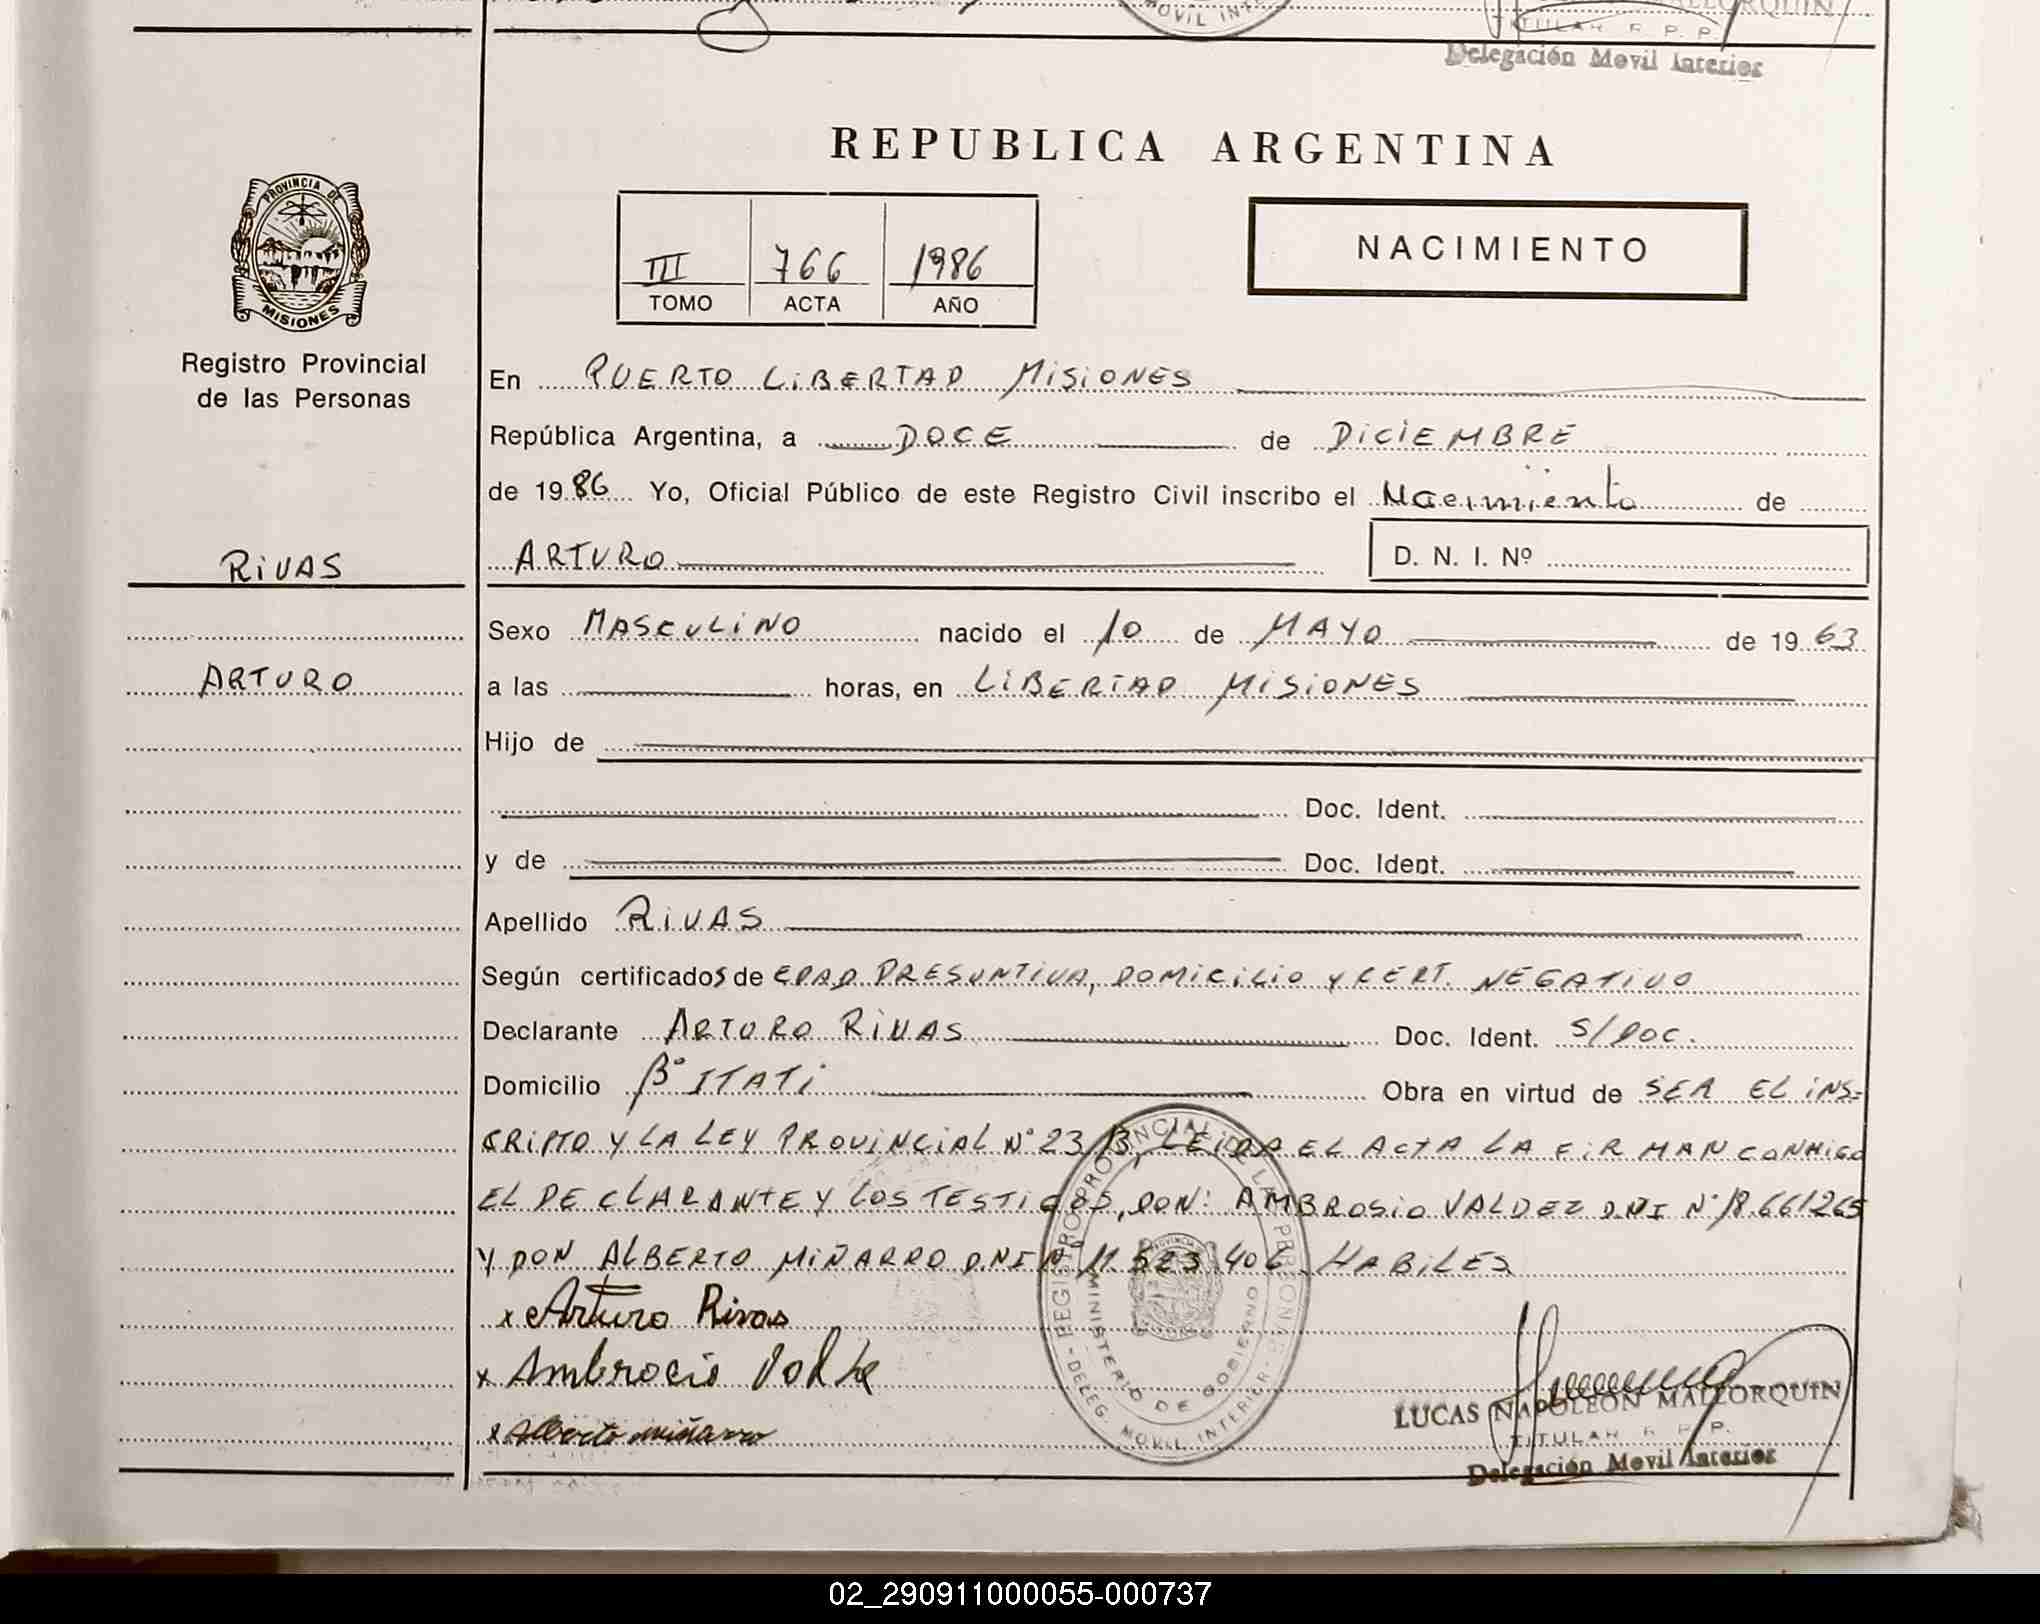 MOVIL INTE
MALLORQUIN
TITULAR R. P. P.
Delegación Movil Interior
REPUBLICA ARGENTINA
PROVINCIA DE
MISIONES
Registro Provincial
de las Personas
III 766 1986
TOMO ACTA AÑO
NACIMIENTO
En PUERTO LIBERTAD MISIONES
República Argentina, a DOCE de DICIEMBRE
de 1986 Yo, Oficial Público de este Registro Civil inscribo el Nacimiento de
RIVAS
ARTURO D. N. I. Nº
Sexo MASCULINO nacido el 10 de MAYO de 1963
ARTURO
a las horas, en LIBERTAD MISIONES
Hijo de
Doc. Ident.
y de Doc. Ident.
Apellido RIVAS
Según certificados de EDAD PRESUNTIVA, DOMICILIO Y CERT. NEGATIVO
Declarante ARTURO RIVAS Doc. Ident. S/DOC.
Domicilio Bº ITATI Obra en virtud de SER EL INS=
CRIPTO Y LA LEY PROVINCIAL Nº 23/13, LEIDA EL ACTA LA FIRMAN CONMIGO
EL DECLARANTE Y LOS TESTIGOS, DON: AMBROSIO VALDEZ D.N.I Nº 18.661265
Y DON ALBERTO MIÑARRO D.N.I Nº 11.523.406 HABILES
x Arturo Rivas
x Ambrocio
x Alberto miñarro
REGISTRO PROVINCIAL DE LAS PERSONAS
MINISTERIO DE GOBIERNO
DELEG. MOVIL INTERIOR
LUCAS NAPOLEON MALLORQUIN
TITULAR R. P. P.
Delegación Movil Interior
02_290911000055-000737